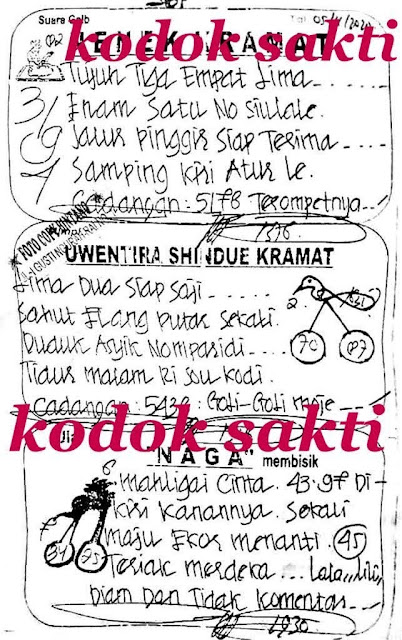 Suara Gaib
Tgl 05/11/2020
kodok sakti
KRAMAT
Tujuh Tiga Empat Lima
3/
Enam Satu No Siulale.
9
Jalur Pinggir Siap Terima
Samping Kiri Atur Le.
Cadangan : 5178 Terompetnya
1876
FOTO COPY BINTANG
UWENTIRA SHINDUE KRAMAT
Lima Dua Siap Saji
2
Sahut Elang Putar Sekali.
Duduk Asyik Nompasidi
70 07
Tidur malam Ri Sou Kodi.
Cadangan : 5432 Goli-Goli moje
kodok sakti
"NAGA" membisik
6
mahligai Cinta. 43.97 Di-
Kiri Kanannya. Sekali
maju Ekor menanti. 45
Teriak merdeka ... Lala,,Lili,
Diam Dan Tidak Komentar
1930